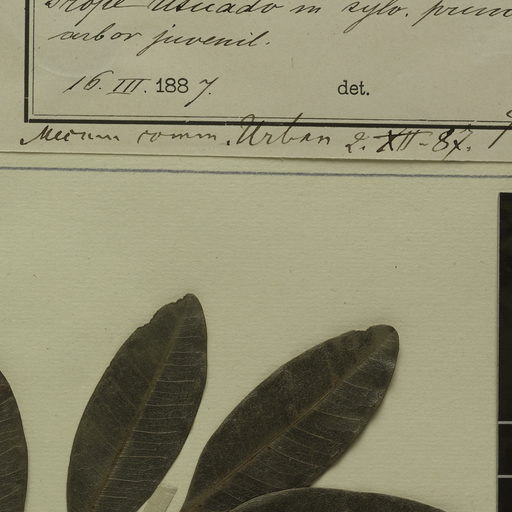 prope Utuado in sylv. prim
arbor juvenil.
16. III. 1887. det.
Mecum comm. Urban 2. XII-87.